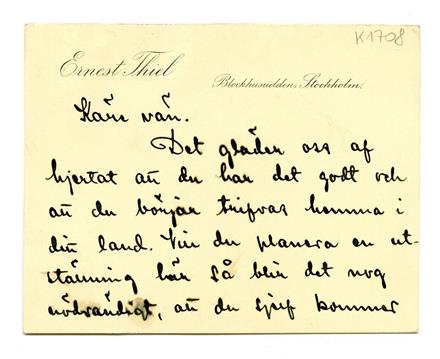 K1708
Ernest Thiel
Blockhusudden, Stockholm.
Käre vän.
Det gläder oss af
hjertat att du har det godt och
att du börjar trifvas hemma i
din land. Vill du planera en ut-
ställning här så blir det nog
nödvändigt, att du sjelf kommer